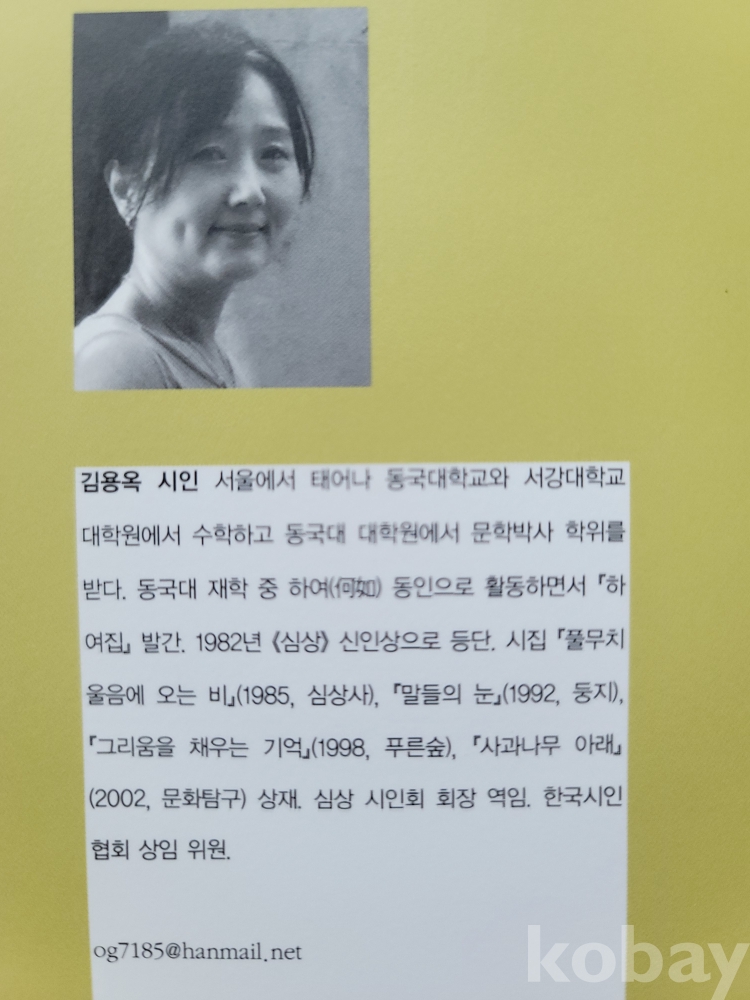 김용옥 시인 서울에서 태어나 동국대학교와 서강대학교
대학원에서 수학하고 동국대 대학원에서 문학박사 학위를
받다. 동국대 재학 중 하여(何如) 동인으로 활동하면서 『하
여집』 발간. 1982년 《심상》 신인상으로 등단. 시집 『풀무치
울음에 오는 비』(1985, 심상사), 『말들의 눈』(1992, 둥지),
『그리움을 채우는 기억』(1998, 푸른숲), 『사과나무 아래』
(2002, 문화탐구) 상재. 심상 시인회 회장 역임. 한국시인
협회 상임 위원.
og7185@hanmail.net
kobay